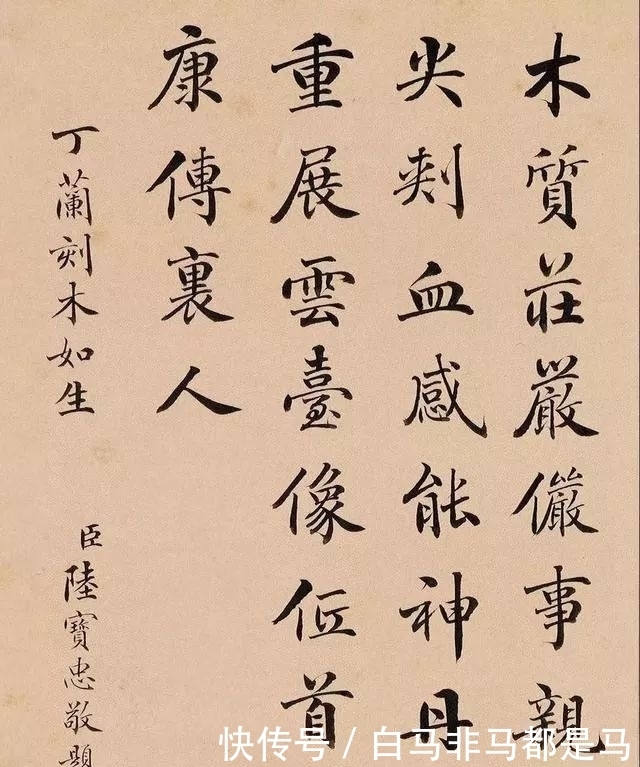 木質莊嚴儼事親
尖刾血感能神丹
重展雲臺像低首
康傳裏人
丁蘭刻木如生
臣陸寶忠敬題
快传号/白马非马都是马